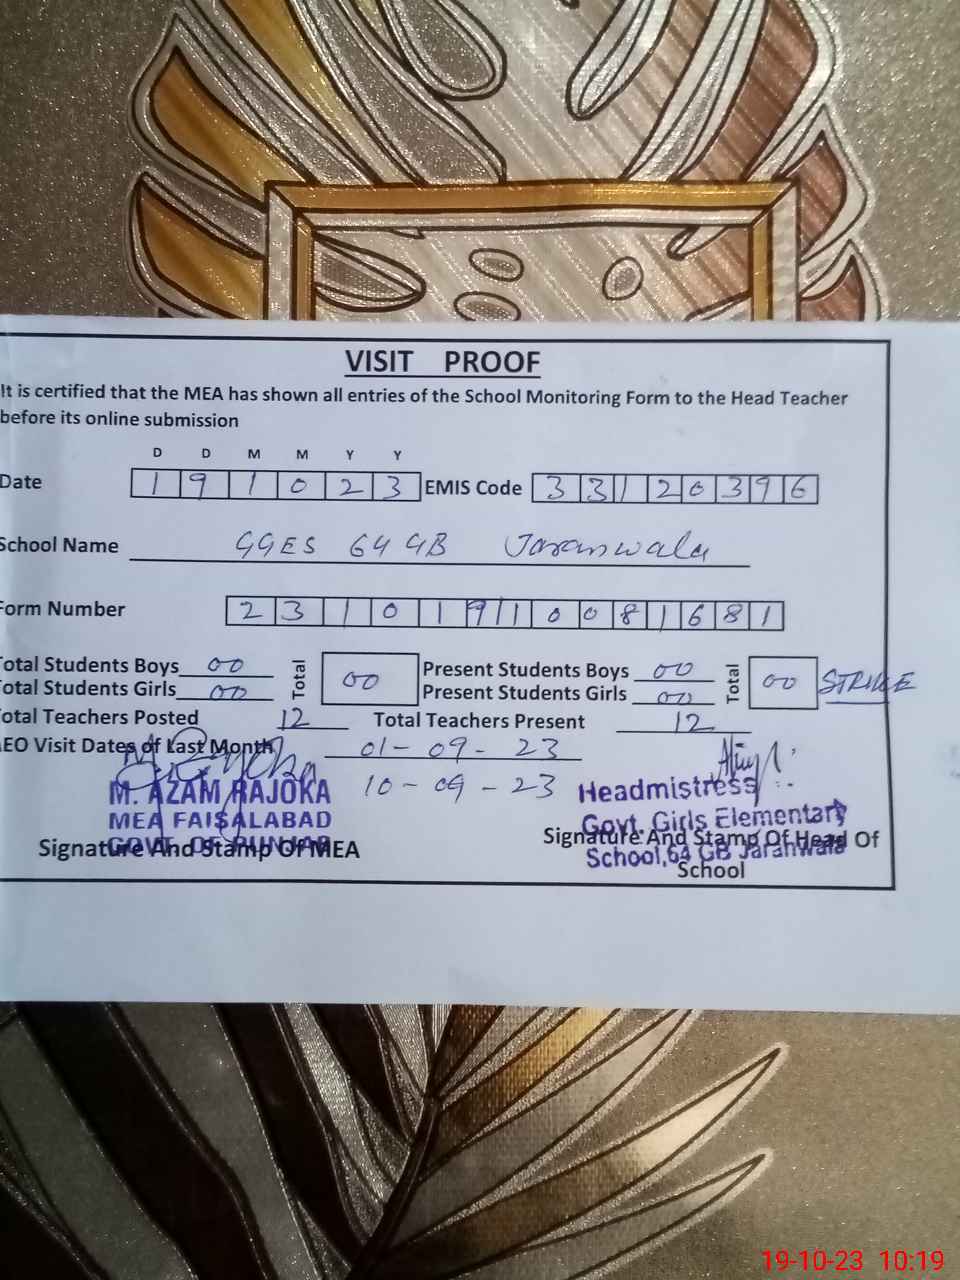 VISIT PROOF
It is certified that the MEA has shown all entries of the School Monitoring Form to the Head Teacher
before its online submission
D D M M Y Y
Date 1 9 1 0 2 3 EMIS Code 3 3 1 2 0 3 9 6
School Name GGES 64 GB Jaranwala
Form Number 2 3 1 0 1 9 1 0 0 8 1 6 8 1
Total Students Boys 00 Total 00 Present Students Boys 00 Total 00 STRIKE
Total Students Girls 00 Present Students Girls 00
Total Teachers Posted 12 Total Teachers Present 12
AEO Visit Dates of Last Month 01-09-23
10-09-23
M. AZAM RAJOKA
MEA FAISALABAD
GOVT. OF PUNJAB
Signature And Stamp Of MEA
Headmistress
Govt. Girls Elementary
School, 64 GB Jaranwala
Signature And Stamp Of Head Of
School
19-10-23 10:19